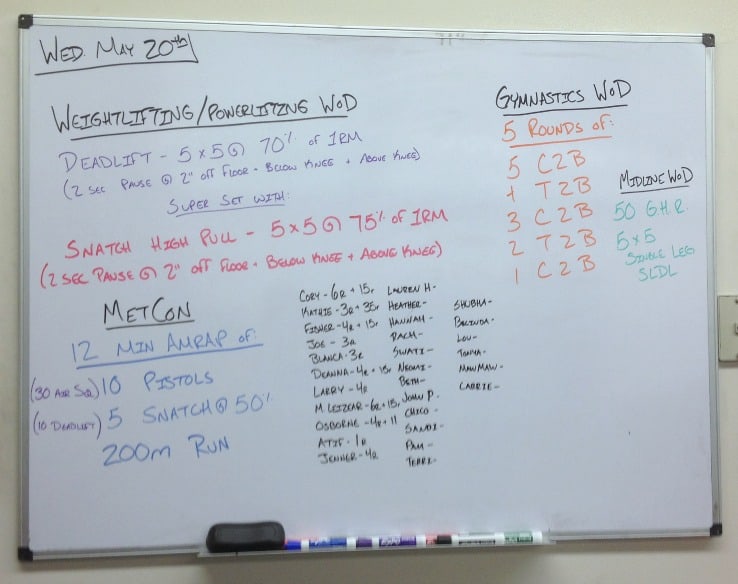 WED. MAY 20th
WEIGHTLIFTING/POWERLIFTING WOD
DEADLIFT - 5x5 @ 70% of 1RM
(2 SEC PAUSE @ 2" off FLOOR - BELOW KNEE + ABOVE KNEE)
SUPER SET WITH:
SNATCH HIGH PULL - 5x5 @ 75% of 1RM
(2 SEC PAUSE @ 2" off FLOOR - BELOW KNEE + ABOVE KNEE)
METCON
12 MIN AMRAP of:
(30 AIR SQ) 10 PISTOLS
(10 DEADLIFT) 5 SNATCH @ 50%
200m RUN
CORY - 6R + 15r
KATHIE - 3R + 35r
FISHER - 4R + 15r
JOE - 3R
BLANCA - 3R
DEANNA - 4R + 15r
LARRY - 4R
M - 6R + 15r
OSBORNE - 4R + 11
ATIF - 1R
JENNER - 4R
LAUREN H -
HEATHER -
HANNAH -
SWATI -
NEOMI -
BETH -
JOHN P.
CHICO -
SANDI -
PAM -
TERRI -
SHUBHA -
BELINDA -
LOU -
TONYA -
MAWMAW -
CARRIE -
GYMNASTICS WOD
5 ROUNDS of:
5 C2B
4 T2B
3 C2B
2 T2B
1 C2B
MIDLINE WOD
50 G.H.R.
5x5
SINGLE LEG
SLDL